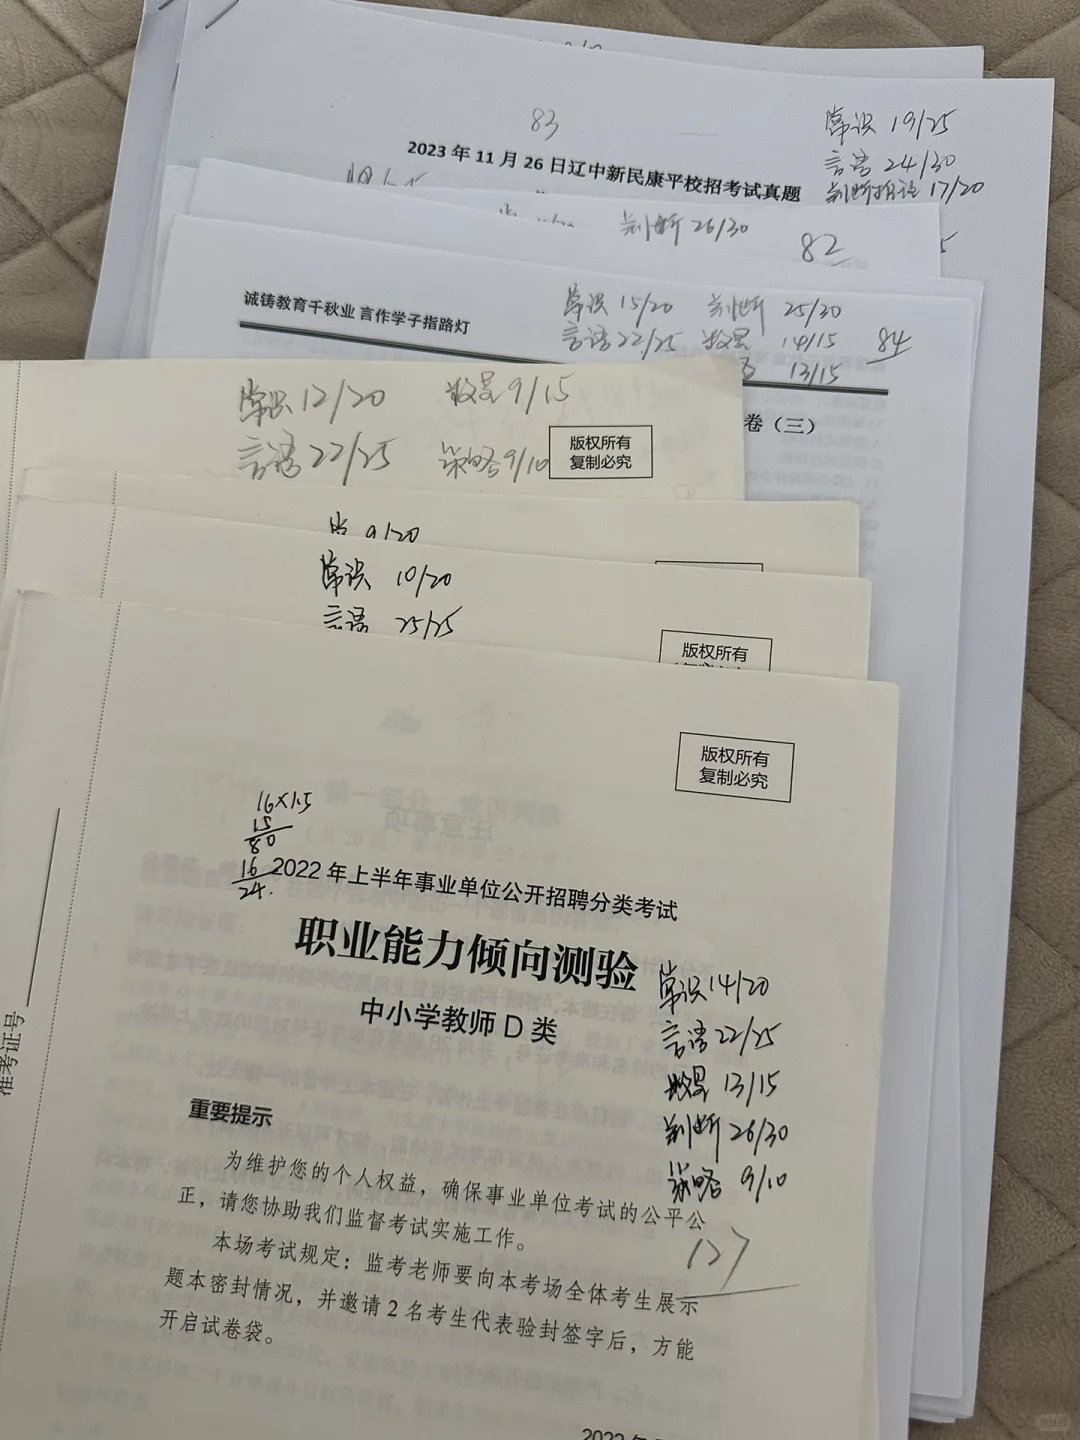 83
2023 年 11 月 26 日辽中新民康平校招考试真题
常识 19/25
言语 24/30
判断推理 17/20
判断 26/30
82
诚铸教育千秋业 言作学子指路灯
常识 15/20 判断 25/30
言语 22/25 数量 14/15
13/15
84
卷（三）
常识 12/20 数量 9/15
言语 22/25 策略 9/10
版权所有
复制必究
9/20
常识 10/20
言语 25/25
版权所有
版权所有
复制必究
16×1.5
15
80
16
24.
2022 年上半年事业单位公开招聘分类考试
职业能力倾向测验
中小学教师 D 类
常识 14/20
言语 22/25
数量 13/15
判断 26/30
策略 9/10
127
准考证号
重要提示
为维护您的个人权益，确保事业单位考试的公平公
正，请您协助我们监督考试实施工作。
本场考试规定：监考老师要向本考场全体考生展示
题本密封情况，并邀请 2 名考生代表验封签字后，方能
开启试卷袋。